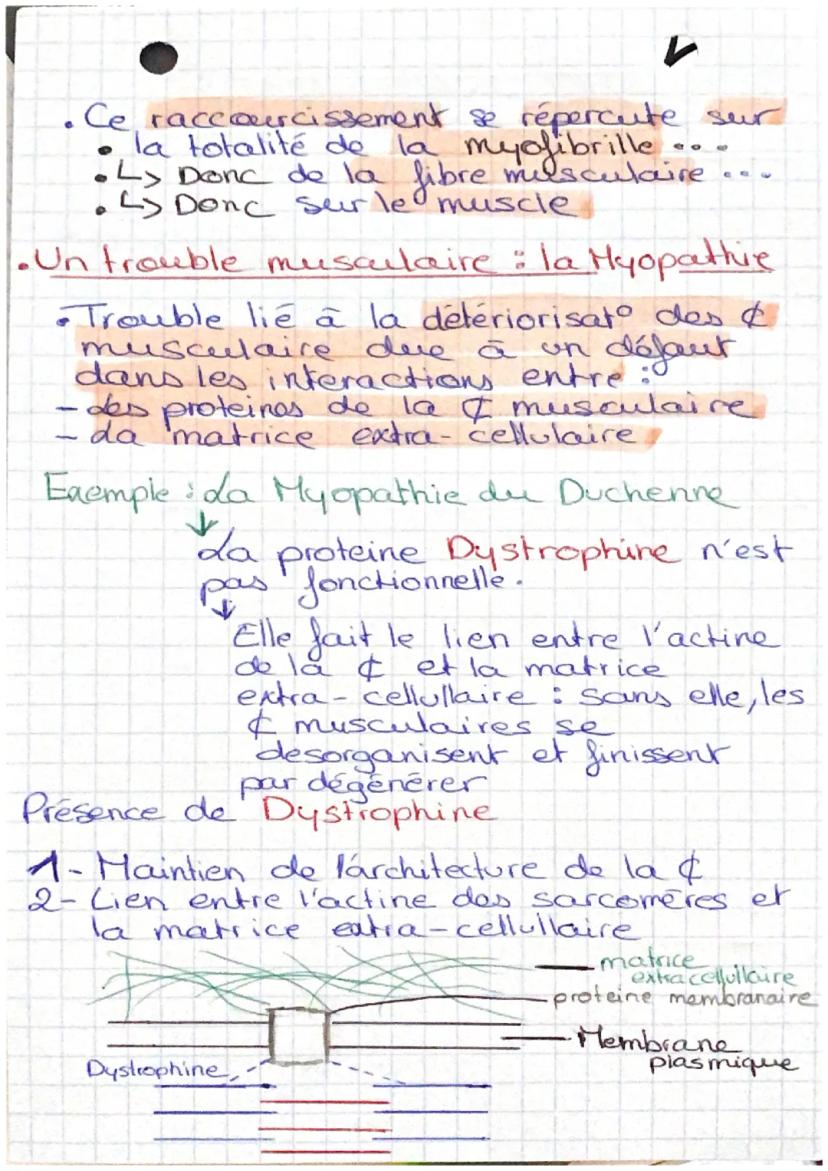 . Ce raccourcissement se répercute sur
• la totalité de la myofibrille ...
• ↳ Donc de la fibre musculaire ...
• ↳ Donc sur le muscle
• Un trouble musculaire : la Myopathie
• Trouble lié à la détériorisat° des ₵
musculaire due à un défaut
dans les interactions entre :
- des proteines de la ₵ musculaire
- La matrice extra-cellulaire
Exemple : La Myopathie du Duchenne
↓
La proteine Dystrophine n'est
pas fonctionnelle.
↓
Elle fait le lien entre l'actine
de la ₵ et la matrice
extra-cellullaire : sans elle, les
₵ musculaires se
desorganisent et finissent
par dégénérer
Présence de Dystrophine
1- Maintien de l'architecture de la ₵
2- Lien entre l'actine des sarcomères et
la matrice extra-cellullaire
matrice
extracellullaire
proteine membranaire
Membrane
plasmique
Dystrophine